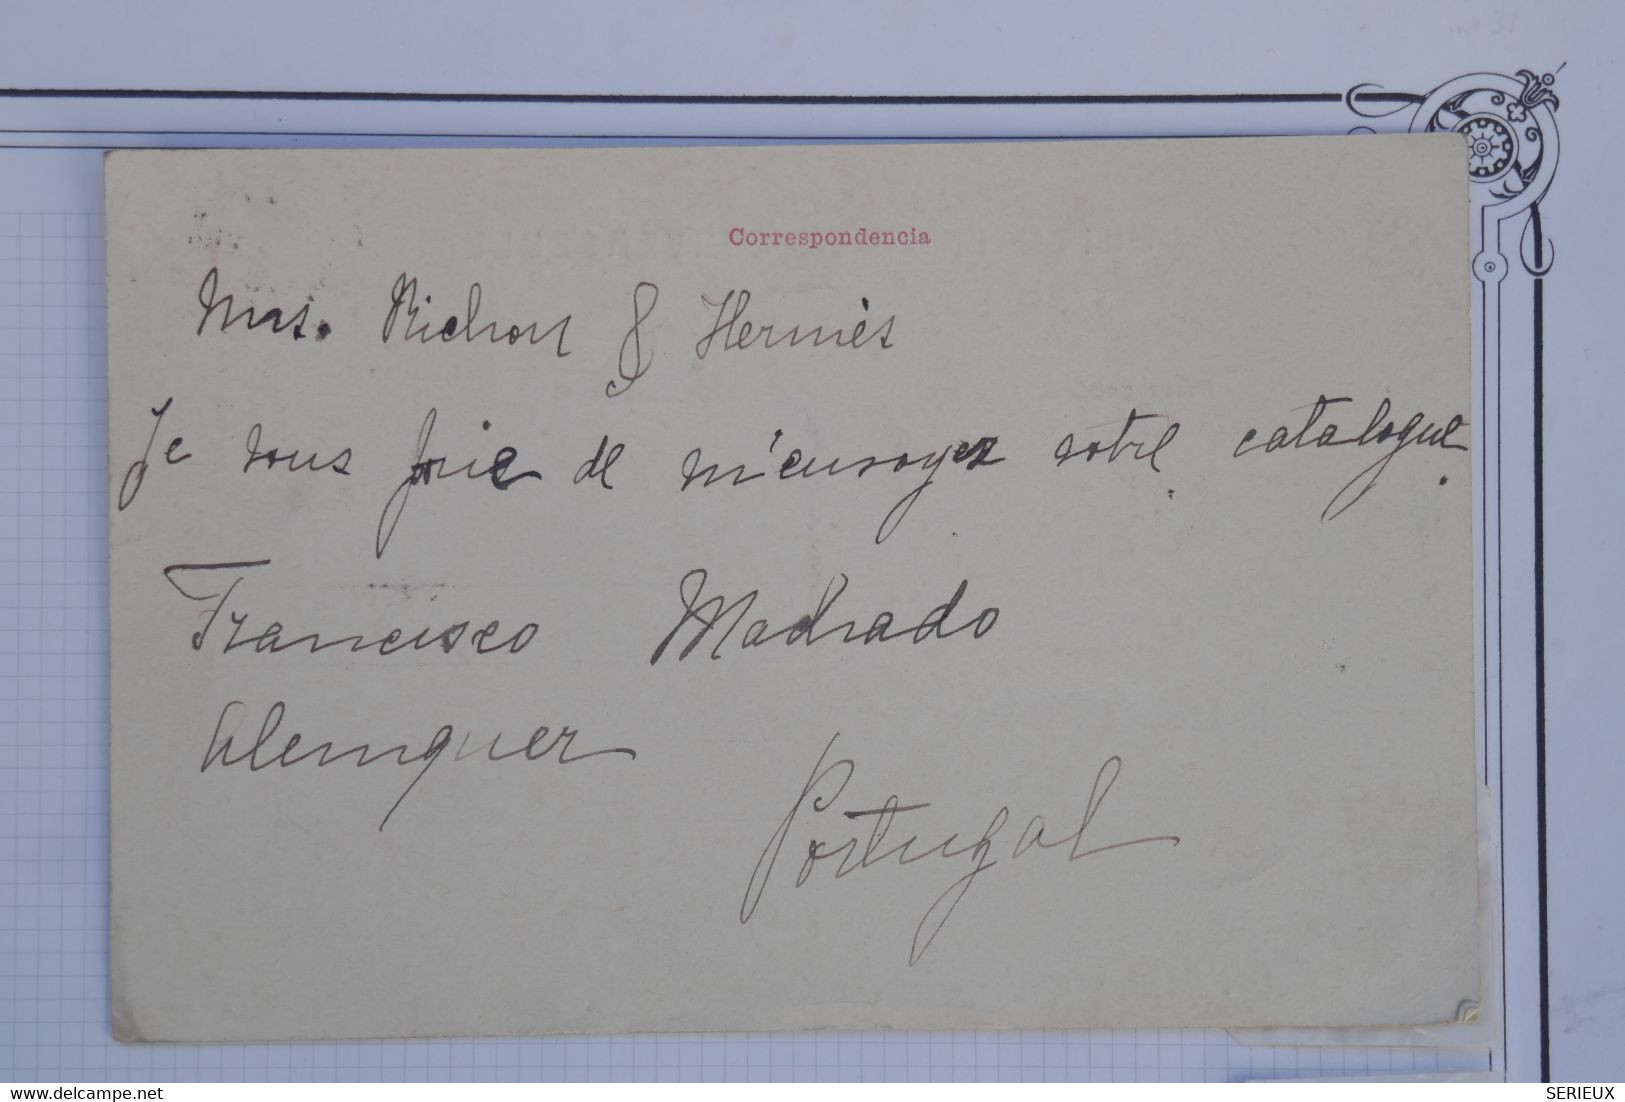 Correspondencia
Mrs. Richon & Hermès
Je vous prie de m'envoyez votre catalogue.
Francisco Madrado
Alemquer
Portugal
www.delcampe.net
SERIEUX